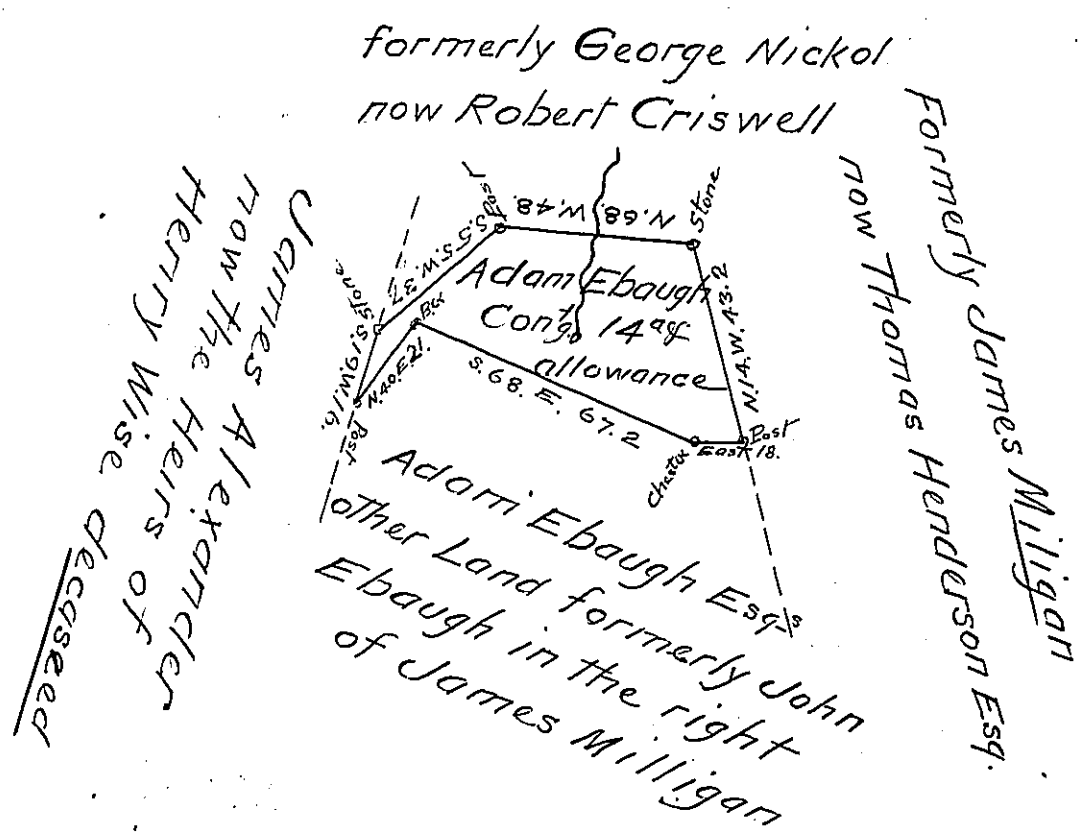 formerly George Nickol
now Robert Criswell
Formerly James Miligan
now Thomas Henderson Esq.
James Alexander
now the Heirs of
Henry Wise deceased
Post
Stone
N.68.W.48.
S.55.W.37.
Stone
S.19.W.16.
Post
N.40.E.21.
S.68.E. 67.2
East 18.
Post
N.14.W.43.2
Adam Ebaugh
Cont.g 14 a&
allowance
Adam Ebaugh Esq.s
other Land formerly John
Ebaugh in the right
of James Milligan